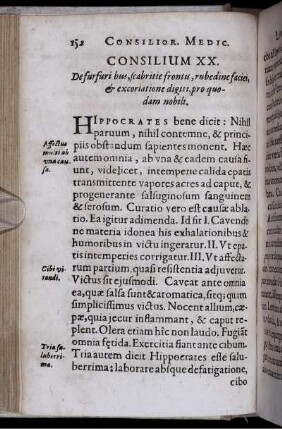 152 CONSILIOR. MEDIC.
CONSILIUM XX.
De furfuribus, scabritie frontis, rubedine faciei,
& excoriatione digiti, pro quo-
dam nobili.
HIPPOCRATES bene dicit: Nihil
paruum, nihil contemne, & princi-
piis obstandum sapientes monent. Hæc
Affectus
multi ab
vna cau-
sa.
autem omnia, ab vna & eadem causa fi-
unt, videlicet, intemperie calida epatis
transmittente vapores acres ad caput, &
progenerante salsuginosum sanguinem
& serosum. Curatio vero est causæ abla-
tio. Ea igitur adimenda. Id fit I. Cavendo
ne materia idonea his exhalationibus &
humoribus in victu ingeratur. II. Vt epa-
tis intemperies corrigatur. III. Vt affecta-
rum partium, quasi resistentia adjuvetur.
Cibi vi-
tandi.
Victus sit ejusmodi. Caveat ante omnia
ea, quæ salsa sunt & aromatica, sitq; quim
simplicissimus victus. Nocent allium, cæ-
pæ, quia jecur inflammant, & caput re-
plent. Olera etiam hîc non laudo. Fugiãt
omnia fętida. Exercitia fiant ante cibum.
Tria sa-
luberri-
ma.
Tria autem dicit Hippocrates esse salu-
berrima; laborare absque defatigatione,
cibo